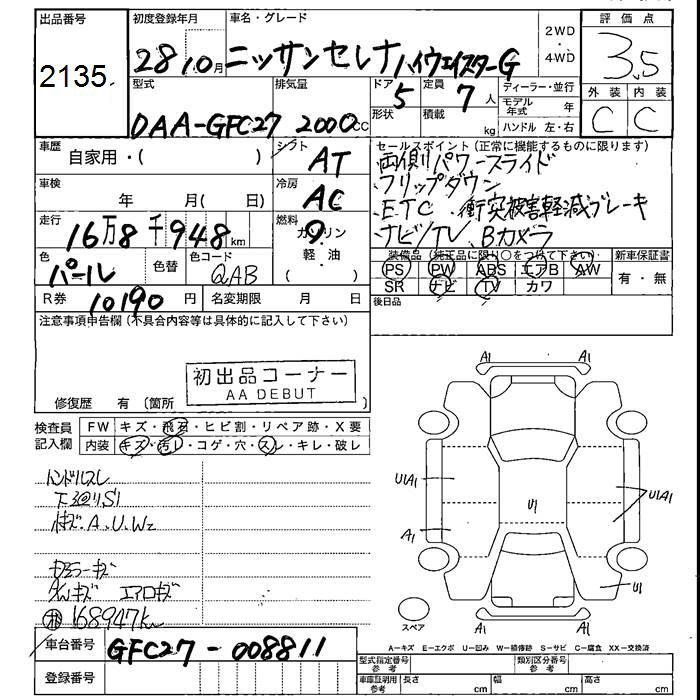 出品番号
2135
初度登録年月
28 10月
車名・グレード
ニッサンセレナ ハイウェイスターG
2WD
・
4WD
評価点
3.5
外装 内装
C C
型式
DAA-GFC27
排気量
2000cc
ドア
5
形状
定員
7人
積載
kg
ディーラー・並行
モデル年式 年
ハンドル 左・右
車歴
自家用・( )
シフト
AT
車検
年 月( 日)
冷房
AC
走行
16万8千948km
燃料
ガソリン
軽・油
( )
色
パール
色替
色コード
QAB
R券 10190円
名変期限 月 日
セールスポイント(正常に機能するものに限ります)
両側パワースライド
フリップダウン
ETC 衝突被害軽減ブレーキ
ナビ/TV、Bカメラ
装備品(純正品に限り○をつけて下さい)
PS PW ABS エアB AW
SR ナビ TV カワ
新車保証書
有・無
後日品
注意事項申告欄(不具合内容等は具体的に記入して下さい)
初出品コーナー
AA DEBUT
修復歴 有〔箇所 〕
検査員記入欄
FW キズ・飛石・ヒビ割・リペア跡・X要
内装 キズ・汚レ・コゲ・穴・スレ・キレ・破レ
ハンドルスレ
下廻りS1
キズ.A.U.W2
エアロキズ
168947km
A1 A1
U1A1
U1
U1A1
A1
U1
A1 A1
スペア
A=キズ E=エクボ U=凹み W=補修跡 S=サビ C=腐食 XX=交換済
車台番号 GFC27-008811
登録番号
型式指定番号 参考
類別区分番号 参考
車庫証明用 参考
長さ cm 幅 cm 高さ cm